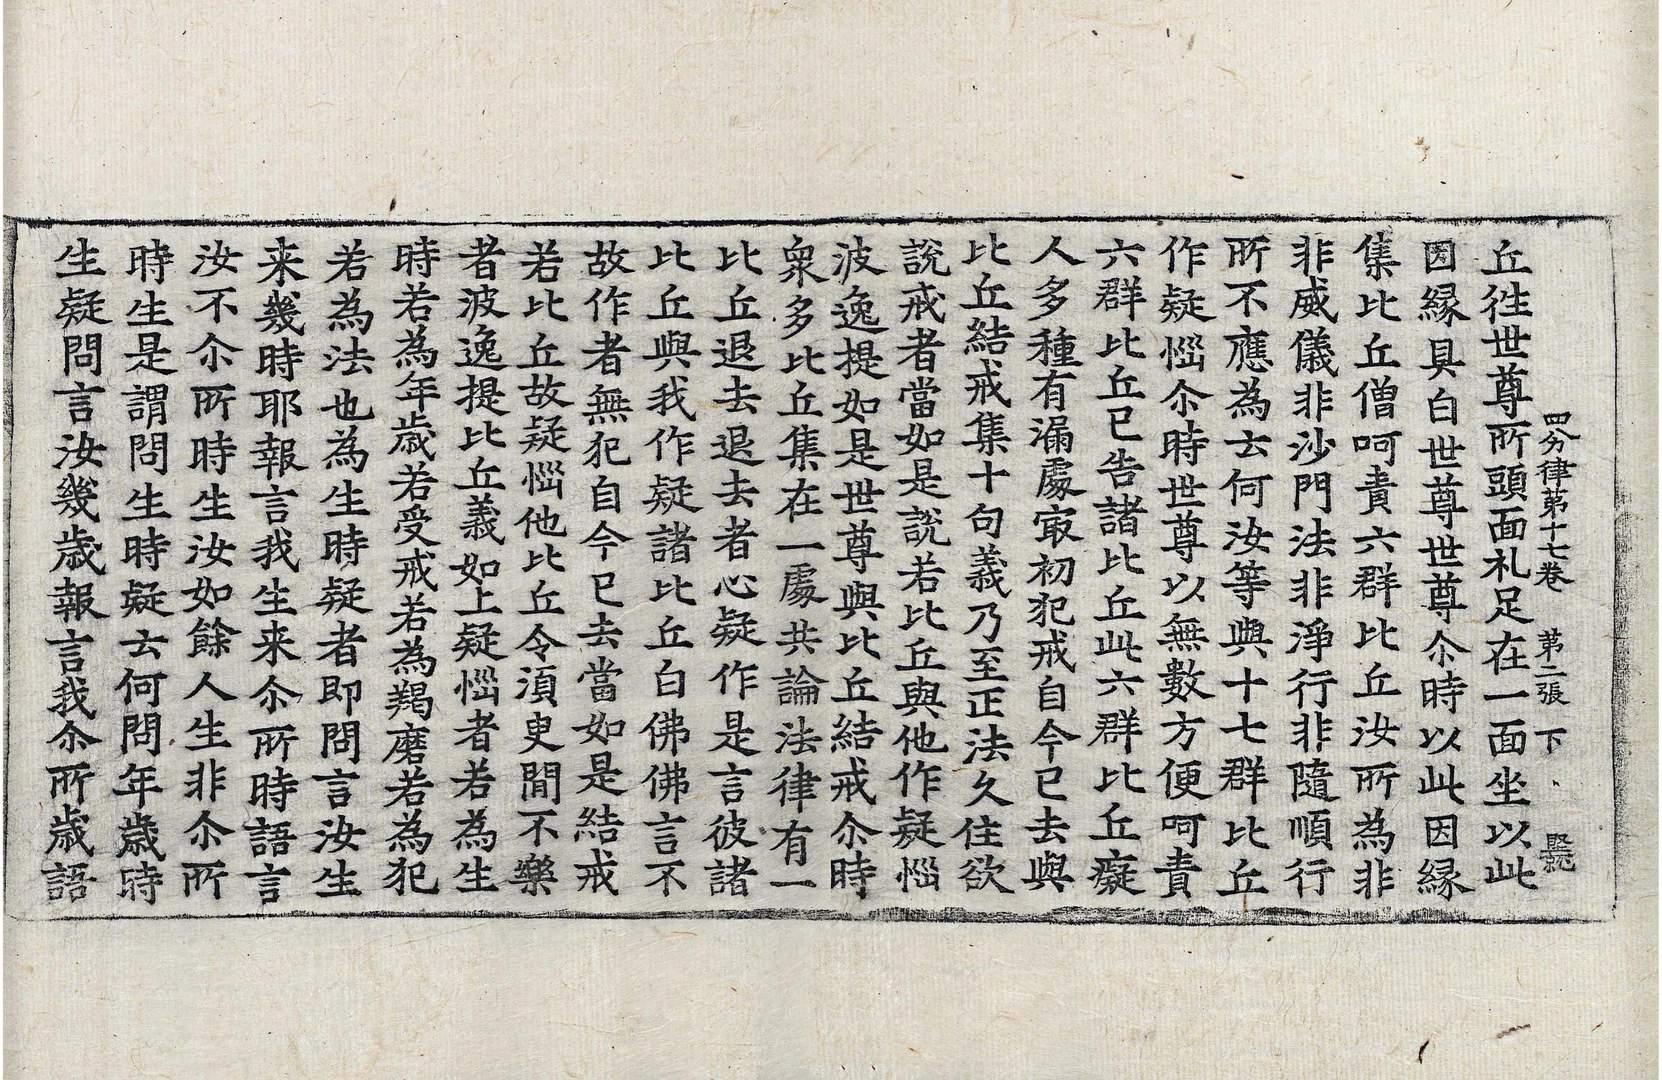 四分律第十七卷 第二張 下
丘徃世尊所頭面礼足在一面坐以此
因縁具白世尊世尊尒時以此因縁
集比丘僧呵責六群比丘汝所為非
非威儀非沙門法非淨行非隨順行
所不應為云何汝等與十七群比丘
作疑惱尒時世尊以無數方便呵責
六群比丘已告諸比丘此六群比丘癡
人多種有漏處冣初犯戒自今已去與
比丘結戒集十句義乃至正法久住欲
說戒者當如是說若比丘與他作疑惱
波逸提如是世尊與比丘結戒尒時
衆多比丘集在一處共論法律有一
比丘退去退去者心疑作是言彼諸
比丘與我作疑諸比丘白佛佛言不
故作者無犯自今已去當如是結戒
若比丘故疑惱他比丘令須臾閒不樂
者波逸提比丘義如上疑惱者若為生
時若為年歲若受戒若為羯磨若為犯
若為法也為生時疑者即問言汝生
来幾時耶報言我生来尒所時語言
汝不尒所時生汝如餘人生非尒所
時生是謂問生時疑云何問年歲時
生疑問言汝幾歲報言我尒所歲語